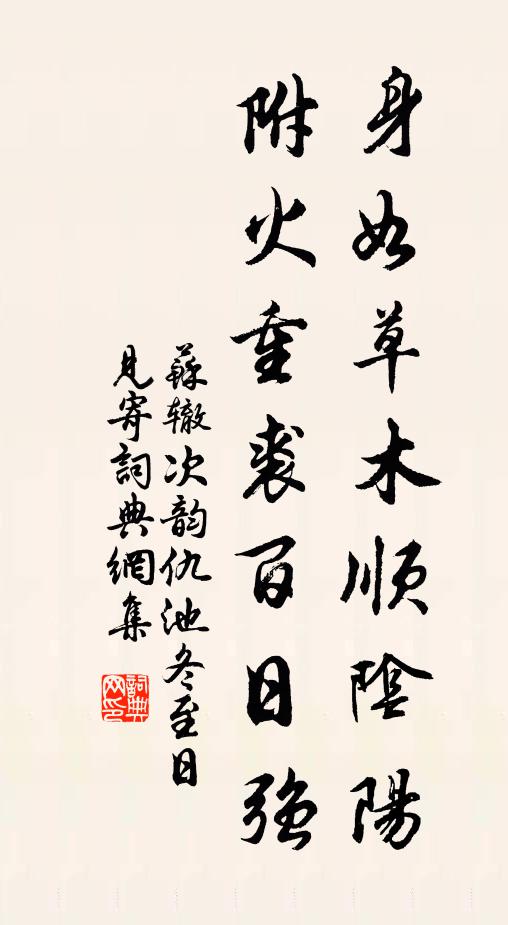 身如草木順陰陽
附火重裘百日強
蘇轍次韵仇池冬至日
見寄詞典網集
詞典
网印